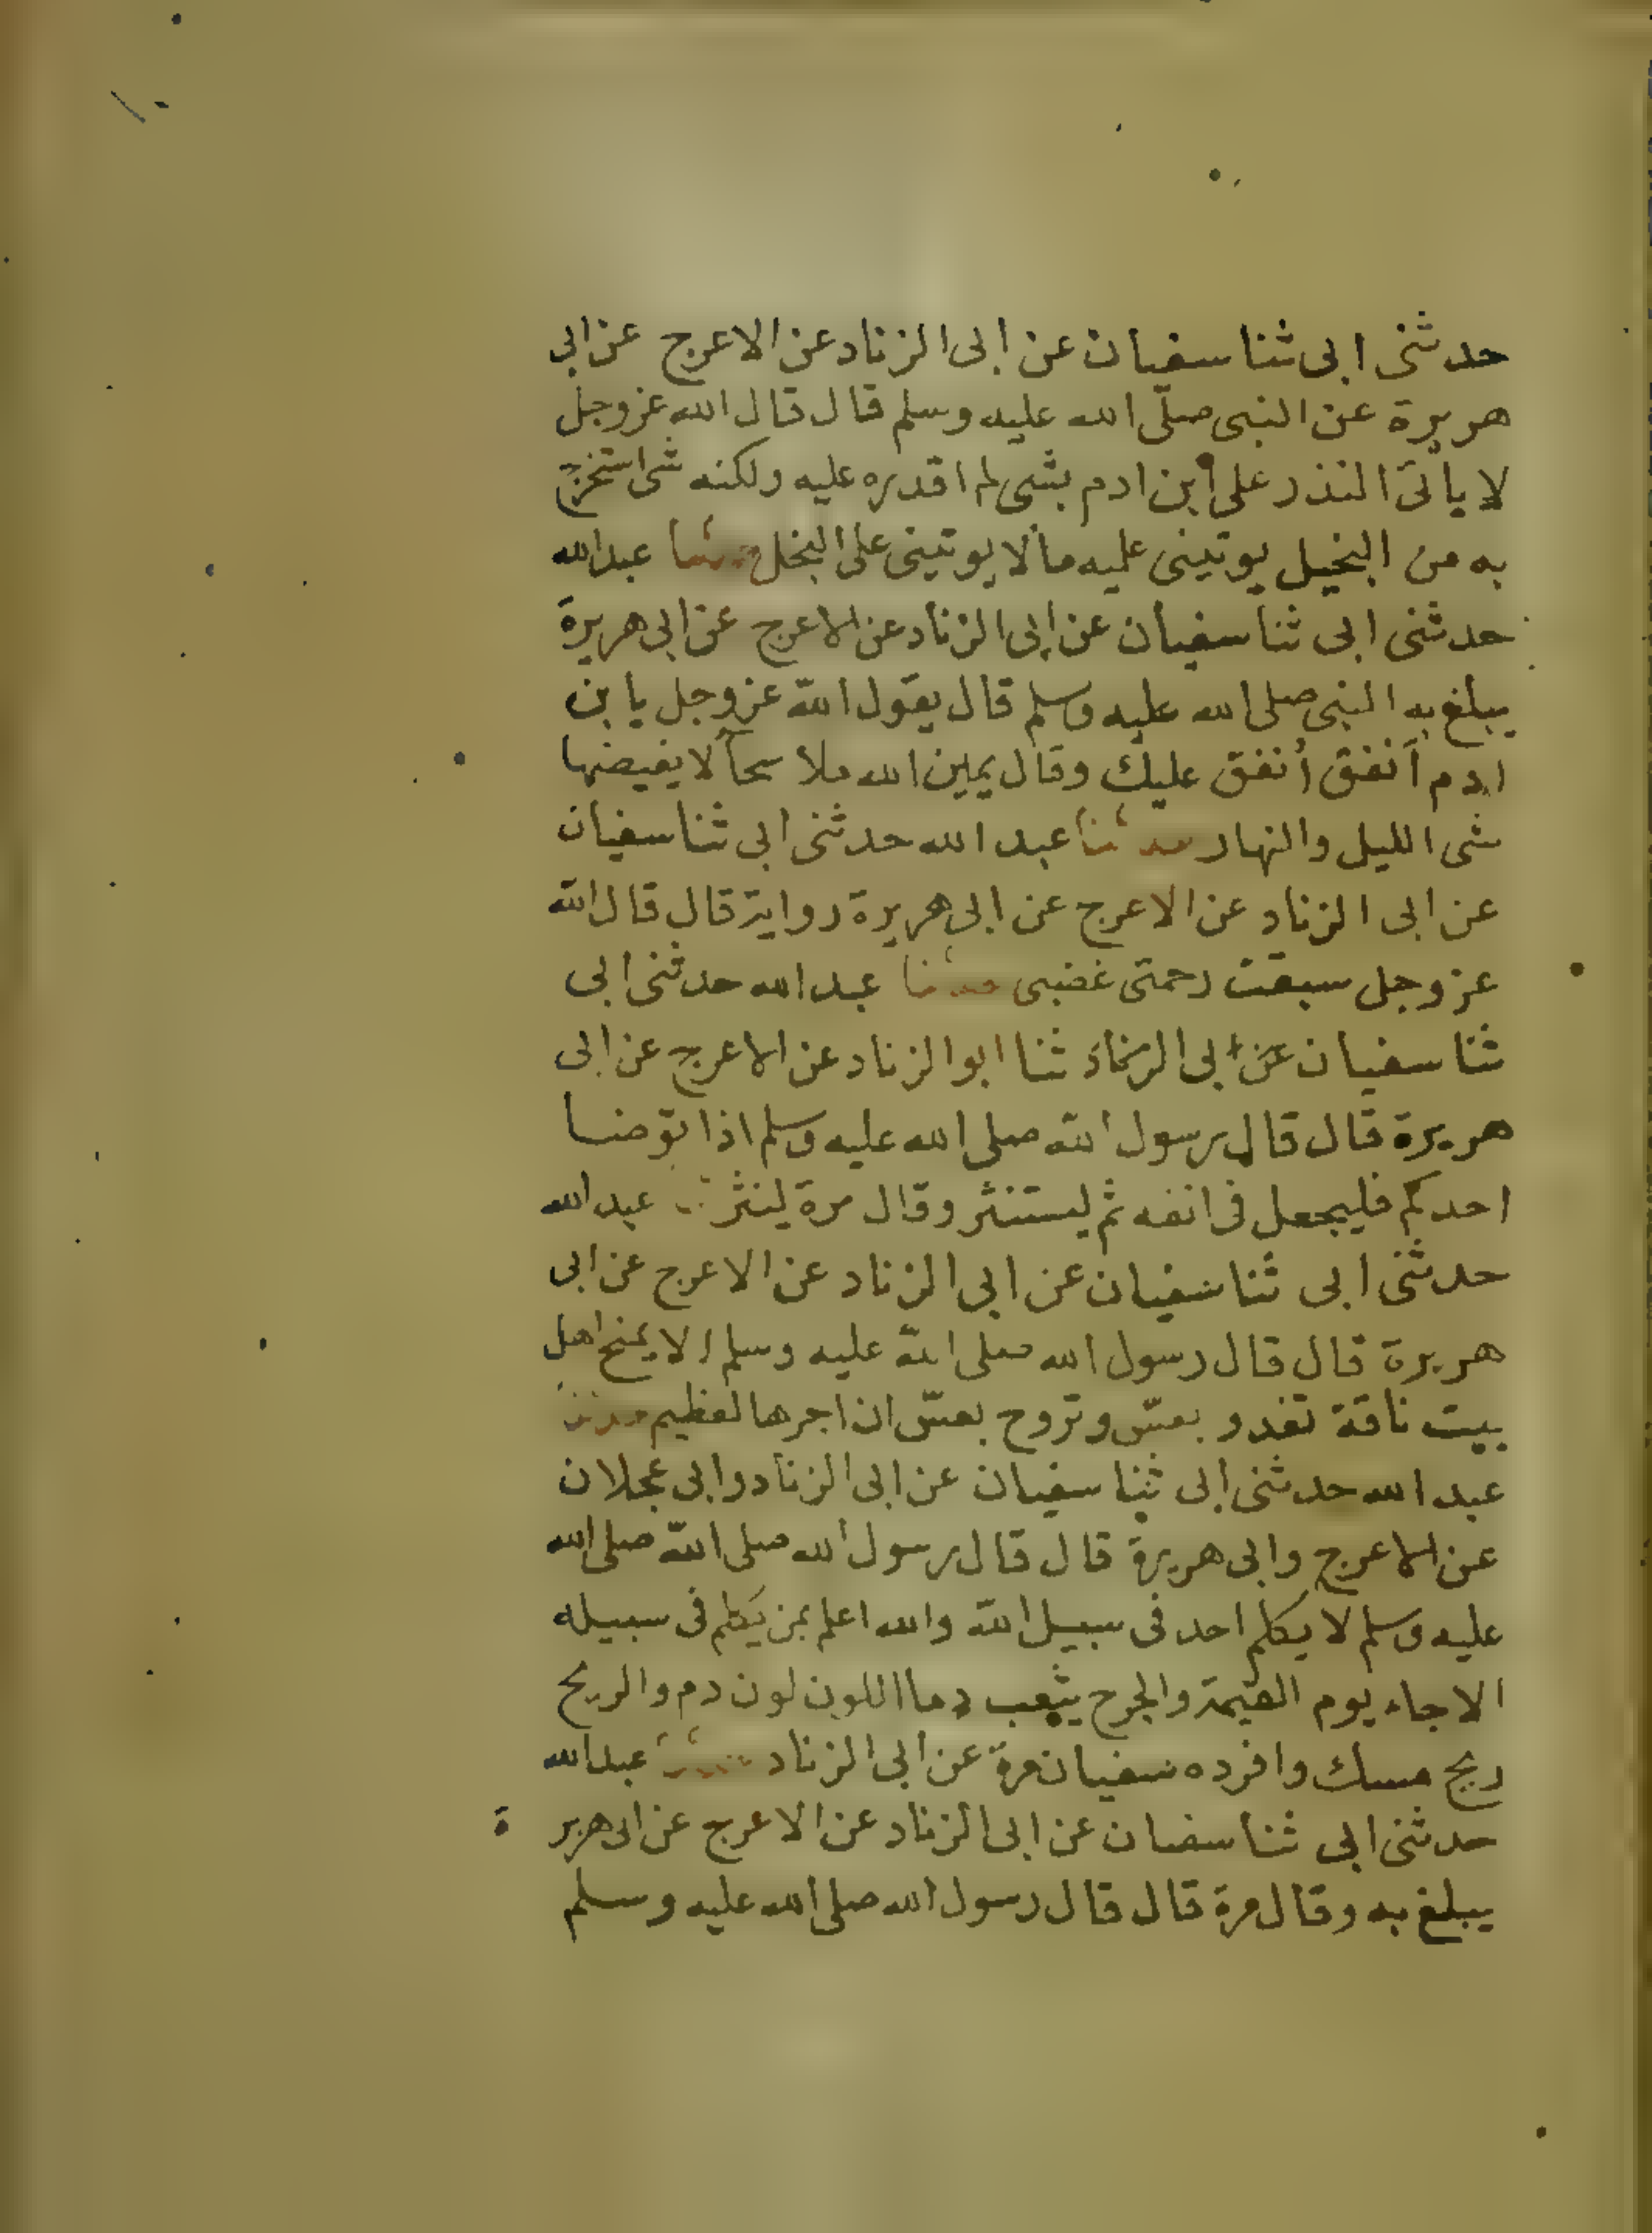 حدثنى ابى ثنا سفيان عن ابى الزناد عن الاعرج عن ابى
هريرة عن النبى صلى الله عليه وسلم قال قال الله عز وجل
لا ياتى النذر على ابن ادم بشى لم اقدره عليه ولكنه شى استخرج
به من البخيل يوتينى عليه مالا يوتينى على البخل حدثنا عبد الله
حدثنى ابى ثنا سفيان عن ابى الزناد عن الاعرج عن ابى هريرة
يبلغ به النبى صلى الله عليه وسلم قال يقول الله عز وجل يا بن
ادم أنفق أنفق عليك وقال يمين الله ملا سحآ لا يغيضها
شى الليل والنهار حدثنا عبد الله حدثنى ابى ثنا سفيان
عن ابى الزناد عن الاعرج عن ابى هريرة رواية قال قال الله
عز وجل سبقت رحمتى غضبى حدثنا عبد الله حدثنى ابى
ثنا سفيان عن ابى الزناد ثنا ابو الزناد عن الاعرج عن ابى
هريرة قال قال رسول الله صلى الله عليه وسلم اذا توضا
احدكم فليجعل فى انفه ثم ليستنثر وقال مرة لينثر عبد الله
حدثنى ابى ثنا سفيان عن ابى الزناد عن الاعرج عن ابى
هريرة قال قال رسول الله صلى الله عليه وسلم الا يمنح اهل
بيت ناقة تغدو بعسّ وتروح بعسّ ان اجرها لعظيم حدثنا
عبد الله حدثنى ابى ثنا سفيان عن ابى الزناد وابى عجلان
عن الاعرج وابى هريرة قال قال رسول الله صلى الله صلى الله
عليه وسلم لا يكلم احد فى سبيل الله والله اعلم بمن يكلم فى سبيله
الا جاء يوم القيمة والجرح يثعب دما اللون لون دم والريح
ريح مسك وافرده سفيان مرة عن ابى الزناد حدثنا عبد الله
حدثنى ابى ثنا سفيان عن ابى الزناد عن الاعرج عن ابى هريرة
يبلغ به وقال مرة قال قال رسول الله صلى الله عليه وسلم